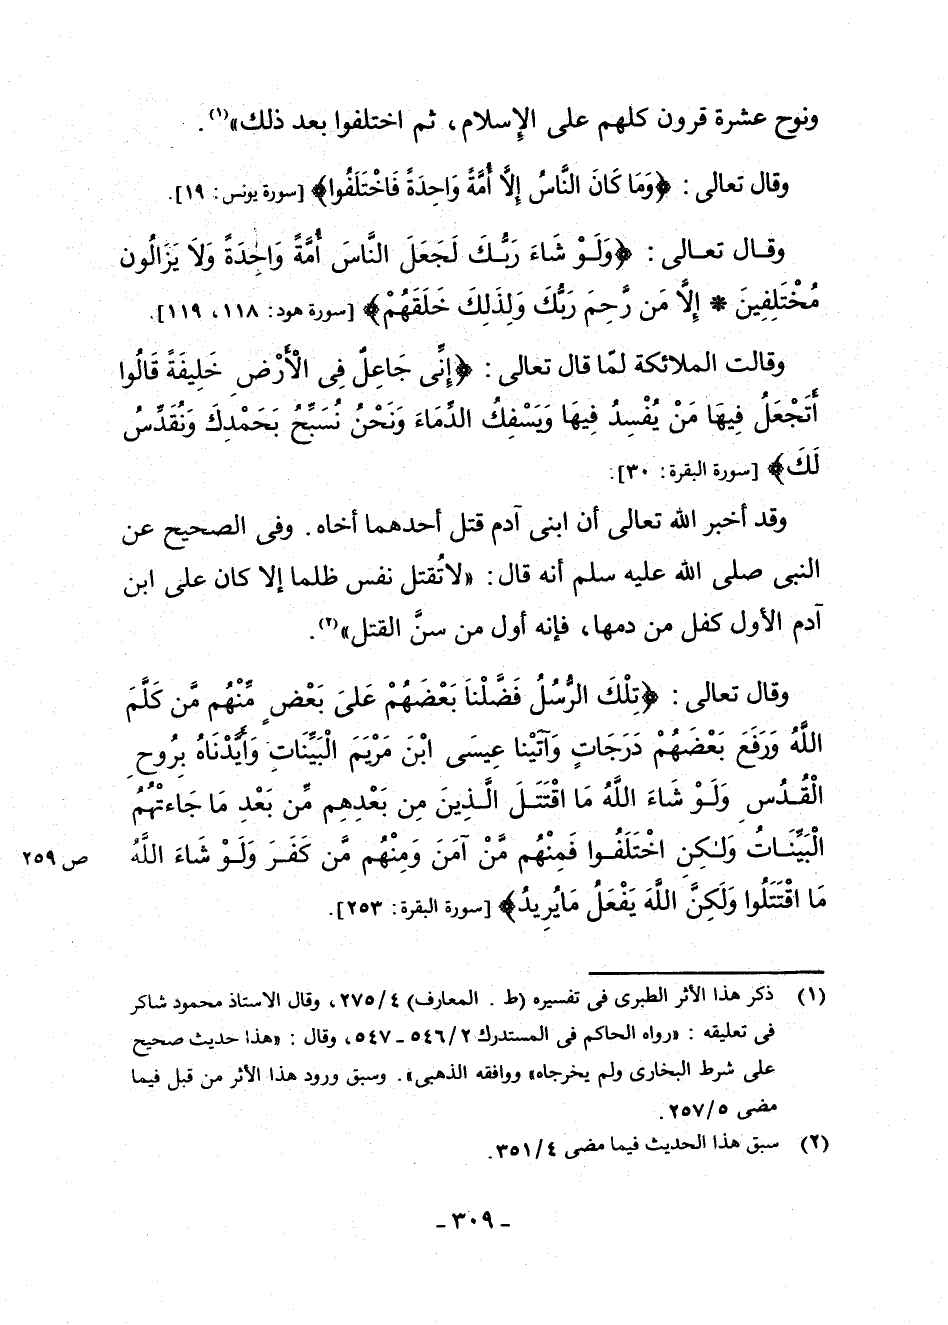 ونوح عشرة قرون كلهم على الإسلام، ثم اختلفوا بعد ذلك»(١).
وقال تعالى: ﴿وَمَا كَانَ النَّاسُ إِلَّا أُمَّةً وَاحِدَةً فَاخْتَلَفُوا﴾ [سورة يونس: ١٩].
وقـال تعـالى: ﴿وَلَـوْ شَاءَ رَبُّـكَ لَجَعَلَ النَّاسَ أُمَّةً وَاحِدَةً وَلاَ يَزَالُون
مُخْتَلِفِينَ * إِلَّا مَن رَّحِمَ رَبُّكَ وَلِذَلِكَ خَلَقَهُمْ﴾ [سورة هود: ١١٨، ١١٩].
وقالت الملائكة لمّا قال تعالى: ﴿إِنِّى جَاعِلٌ فِى الْأَرْضِ خَلِيفَةً قَالُوا
أَتَجْعَلُ فِيهَا مَنْ يُفْسِدُ فِيهَا وَيَسْفِكُ الدِّمَاءَ وَنَحْنُ نُسَبِّحُ بَحَمْدِكَ وَنُقَدِّسُ
لَكَ﴾ [سورة البقرة: ٣٠].
وقد أخبر الله تعالى أن ابنى آدم قتل أحدهما أخاه. وفى الصحيح عن
النبى صلى الله عليه سلم أنه قال: «لاتُقتل نفس ظلما إلا كان على ابن
آدم الأول كفل من دمها، فإنه أول من سنَّ القتل»(٢).
وقال تعالى: ﴿تِلْكَ الرُّسُلُ فَضَّلْنَا بَعْضَهُمْ عَلىَ بَعْضٍ مِّنْهُم مَّن كَلَّمَ
اللَّهُ وَرَفَعَ بَعْضَهُمْ دَرَجَاتٍ وَآتَيْنا عِيسَى ابْنَ مَرْيَمَ الْبَيِّنَاتِ وَأَيَّدْنَاهُ بِرُوحِ
الْقُـدُسِ وَلَـوْ شَاءَ اللَّهُ مَا اقْتَتَـلَ الَّـذِينَ مِن بَعْدِهِم مِّن بَعْدِ مَا جَاءتْهُمُ
الْبَيِّنَـاتُ وَلـكِنِ اخْتَلَفُـوا فَمِنْهُم مَّنْ آمَنَ وَمِنْهُم مَّن كَفَرَ وَلَـوْ شَاءَ اللَّهُ
ص ٢٥٩
مَا اقْتَتَلُوا وَلَكِنَّ اللَّهَ يَفْعَلُ مَايُرِيدُ﴾ [سورة البقرة: ٢٥٣].
(١) ذكر هذا الأثر الطبرى فى تفسيره (ط. المعارف) ٢٧٥/٤، وقال الاستاذ محمود شاكر
فى تعليقه: «رواه الحاكم فى المستدرك ٥٤٦/٢ ـ ٥٤٧، وقال: «هذا حديث صحيح
على شرط البخارى ولم يخرجاه» ووافقه الذهبى». وسبق ورود هذا الأثر من قبل فيما
مضى ٢٥٧/٥.
(٢) سبق هذا الحديث فيما مضى ٣٥١/٤.
ـ ٣٠٩ ـ